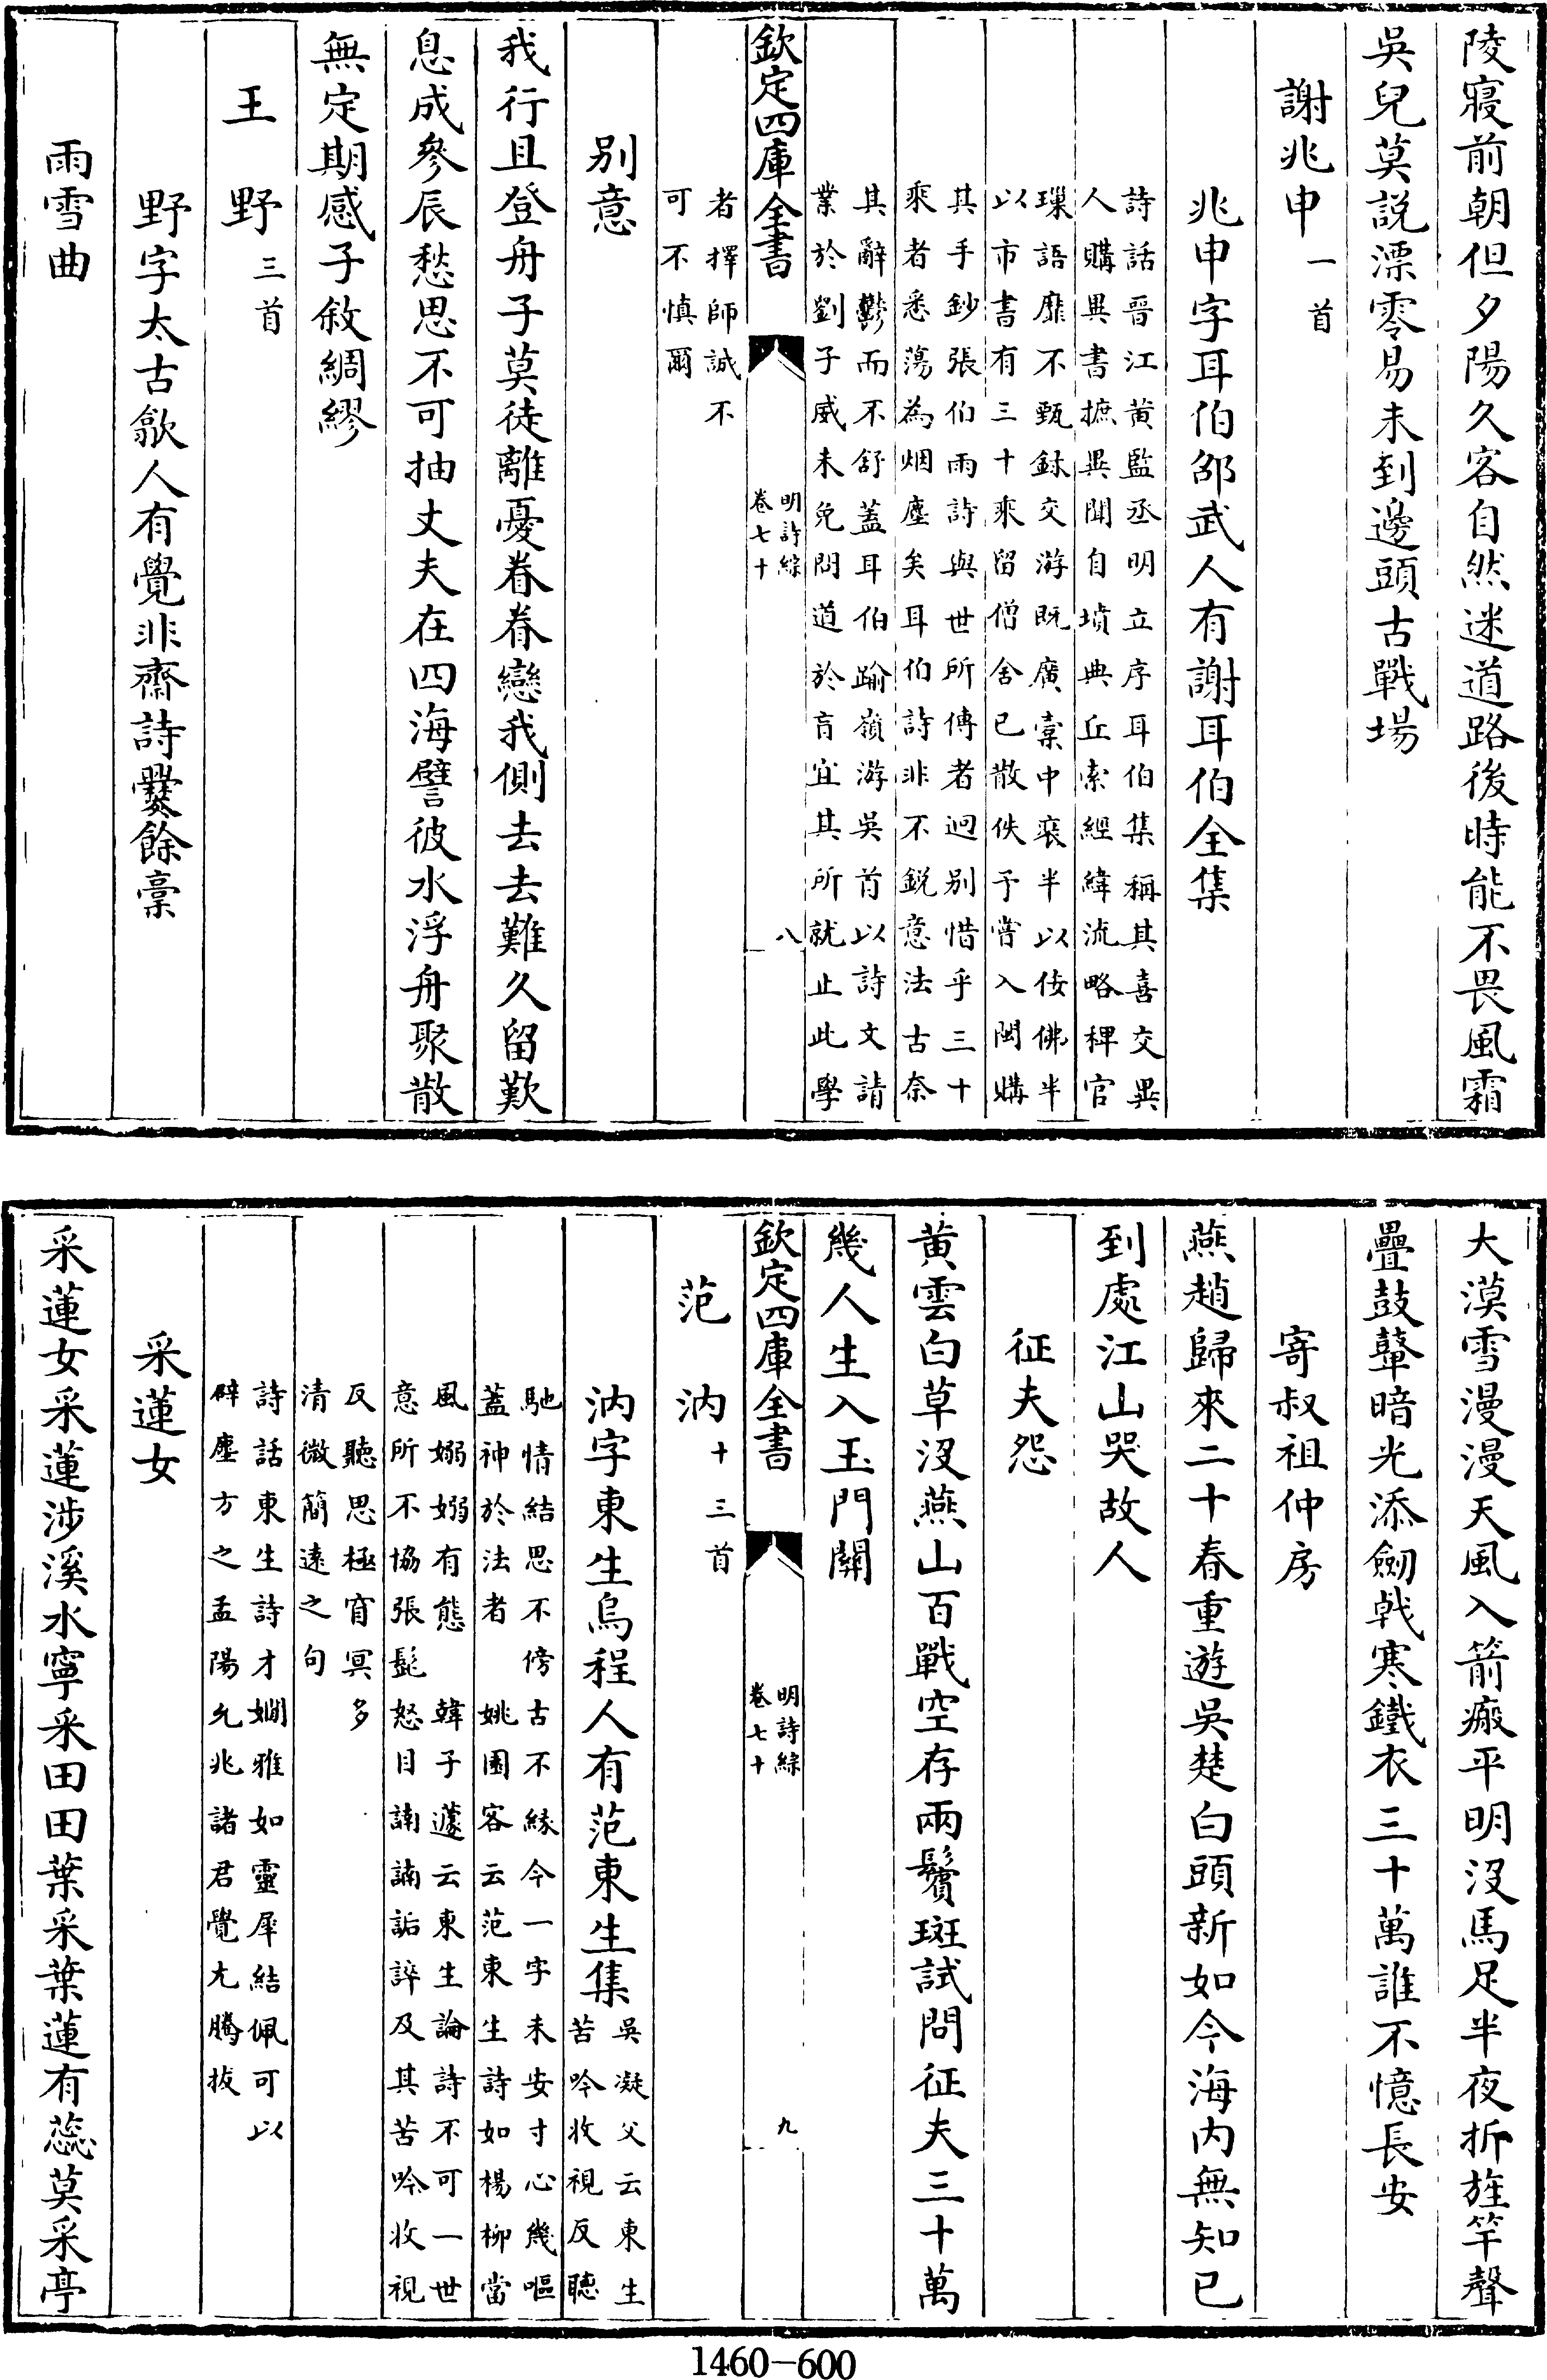 陵寢前朝但夕陽久客自然迷道路後時能不畏風霜
吳兒莫説漂零易未到邊頭古戰塲
謝兆申一首
兆申字耳伯邵武人有謝耳伯全集
詩話晋江黄監丞明立序耳伯集稱其喜交異
人購異書摭異聞自墳典丘索經緯流略稗官
璅語靡不甄録交游既廣槖中裝半以佞佛半
以市書有三十乘留僧舍已散佚予嘗入閩購
其手鈔張伯雨詩與世所傳者迥别惜乎三十
乘者悉蕩為烟塵矣耳伯詩非不鋭意法古奈
其辭鬱而不舒蓋耳伯踰嶺游吳首以詩文請
業於劉子威未免問道於盲宜其所就止此學
欽定四庫全書
明詩綜
卷七十
八
者擇師誠不
可不慎爾
别意
我行且登舟子莫徒離憂眷眷戀我側去去難久留歎
息成參辰愁思不可抽丈夫在四海譬彼水浮舟聚散
無定期感子敘綢繆
王野三首
野字太古歙人有覺非齋詩爨餘稾
雨雪曲
大漠雪漫漫天風入箭瘢平明沒馬足半夜折旌竿聲
疊鼓鼙暗光添劒戟寒鐵衣三十萬誰不憶長安
寄叔祖仲房
燕趙歸來二十春重遊吳楚白頭新如今海内無知已
到處江山哭故人
征夫怨
黄雲白草沒燕山百戰空存兩鬢斑試問征夫三十萬
幾人生入玉門關
欽定四庫全書
明詩綜
卷七十
九
范汭十三首
汭字東生烏程人有范東生集吳凝父云東生
苦吟收視反聽
馳情結思不傍古不緣今一字未安寸心幾嘔
蓋神於法者 姚園客云范東生詩如楊柳當
風嫋嫋有態 韓子蘧云東生論詩不可一世
意所不協張髭怒目諵諵詬誶及其苦吟收視
反聽思極窅冥多
清微簡遠之句
詩話東生詩才嫺雅如靈犀結佩可以
辟塵方之孟陽允兆諸君覺尤騰拔
采蓮女
采蓮女采蓮涉溪水寧采田田葉采葉蓮有蕊莫采亭
1460-600